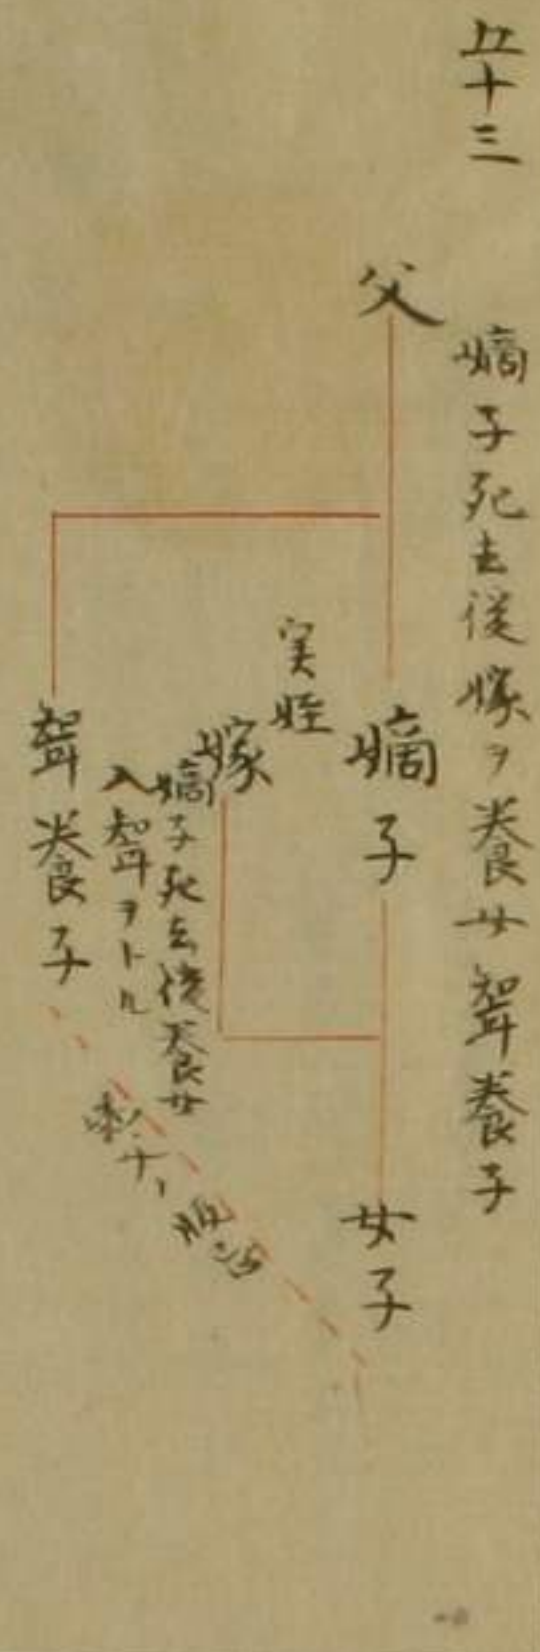 五十三
嫡子死去後嫁ヲ養女聟養子
父
嫡子
実姪
嫁
嫡子死去後養女
入聟ヲトル
聟養子
服忌
女子